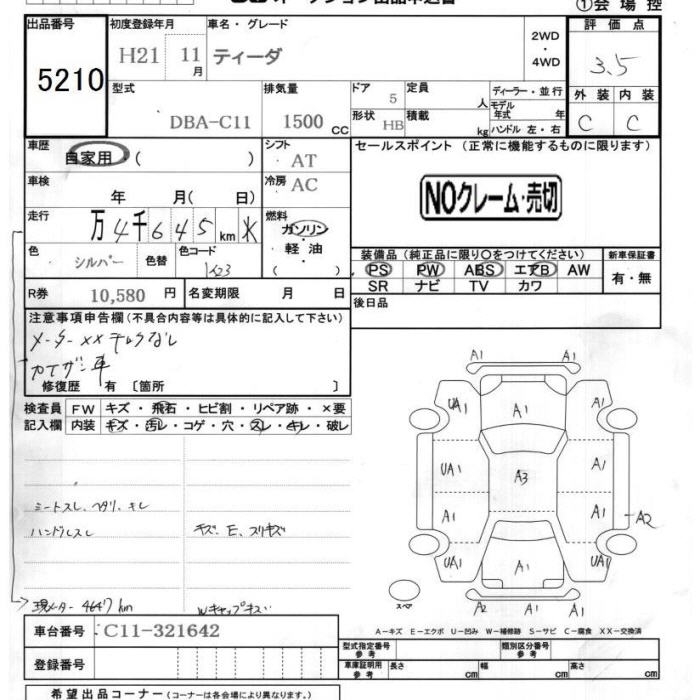 ①会場控
出品番号
5210
初度登録年月
H21 11月
車名・グレード
ティーダ
2WD
・
4WD
評価点
3.5
型式
DBA-C11
排気量
1500 CC
ドア
5
形状
HB
定員
人
積載
kg
ディーラー・並行
モデル年式 年
ハンドル 左・右
外装 内装
C C
車歴
自家用・( )
シフト
AT
車検
年 月( 日)
冷房
AC
走行
万4千645km
燃料
ガソリン・
軽油・
( )
色
シルバー
色替
色コード
K23
セールスポイント (正常に機能するものに限ります)
NOクレーム・売切
装備品(純正品に限り○をつけてください)
新車保証書
PS PW ABS エアB AW
SR ナビ TV カワ
有・無
R券 10,580 円
名変期限 月 日
後日品
注意事項申告欄(不具合内容等は具体的に記入して下さい)
メーターXX
車
修復歴 有 〔箇所 〕
検査員記入欄
FW キズ・飛石・ヒビ割・リペア跡・×要
内装 キズ・汚レ・コゲ・穴・スレ・キレ・破レ
シートスレ、ヘタリ、キレ
ハンドルスレ
キズ、E、スリキズ
現メーター 4647km
Wキャップキズ
A1 A1
UA1 A1 A1
UA1 A3 A1
A1 A1 A2
UA1 A1 UA1
スペア
A2 A1 A1
A-キズ E-エクボ U-凹み W-補修跡 S-サビ C-腐食 XX-交換済
車台番号 C11-321642
登録番号
型式指定番号参考
類別区分番号参考
車庫証明用参考 長さ cm 幅 cm 高さ cm
希望出品コーナー(コーナーは各会場により異なります。)